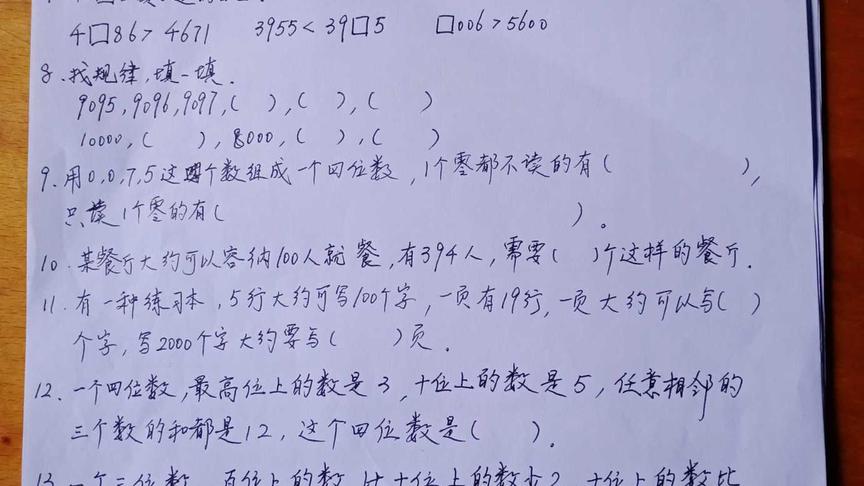 4□86> 4671 3955< 39□5 □006>5600
8、找规律,填一填.
9095,9096,9097,( ),( ),( )
10000,( ),8000,( ),( )
9、用0,0,7,5这四个数组成一个四位数,1个零都不读的有( ),
只读1个零的有( )。
10、某餐厅大约可以容纳100人就餐,有394人,需要( )个这样的餐厅.
11、有一种练习本,5行大约可写100个字,一页有19行,一页大约可以写( )
个字,写2000个字大约要写( )页.
12、一个四位数,最高位上的数是3,十位上的数是5,任意相邻的
三个数的和都是12,这个四位数是( ).
13、一个三位数,百位上的数比十位上的数少2,十位上的数比